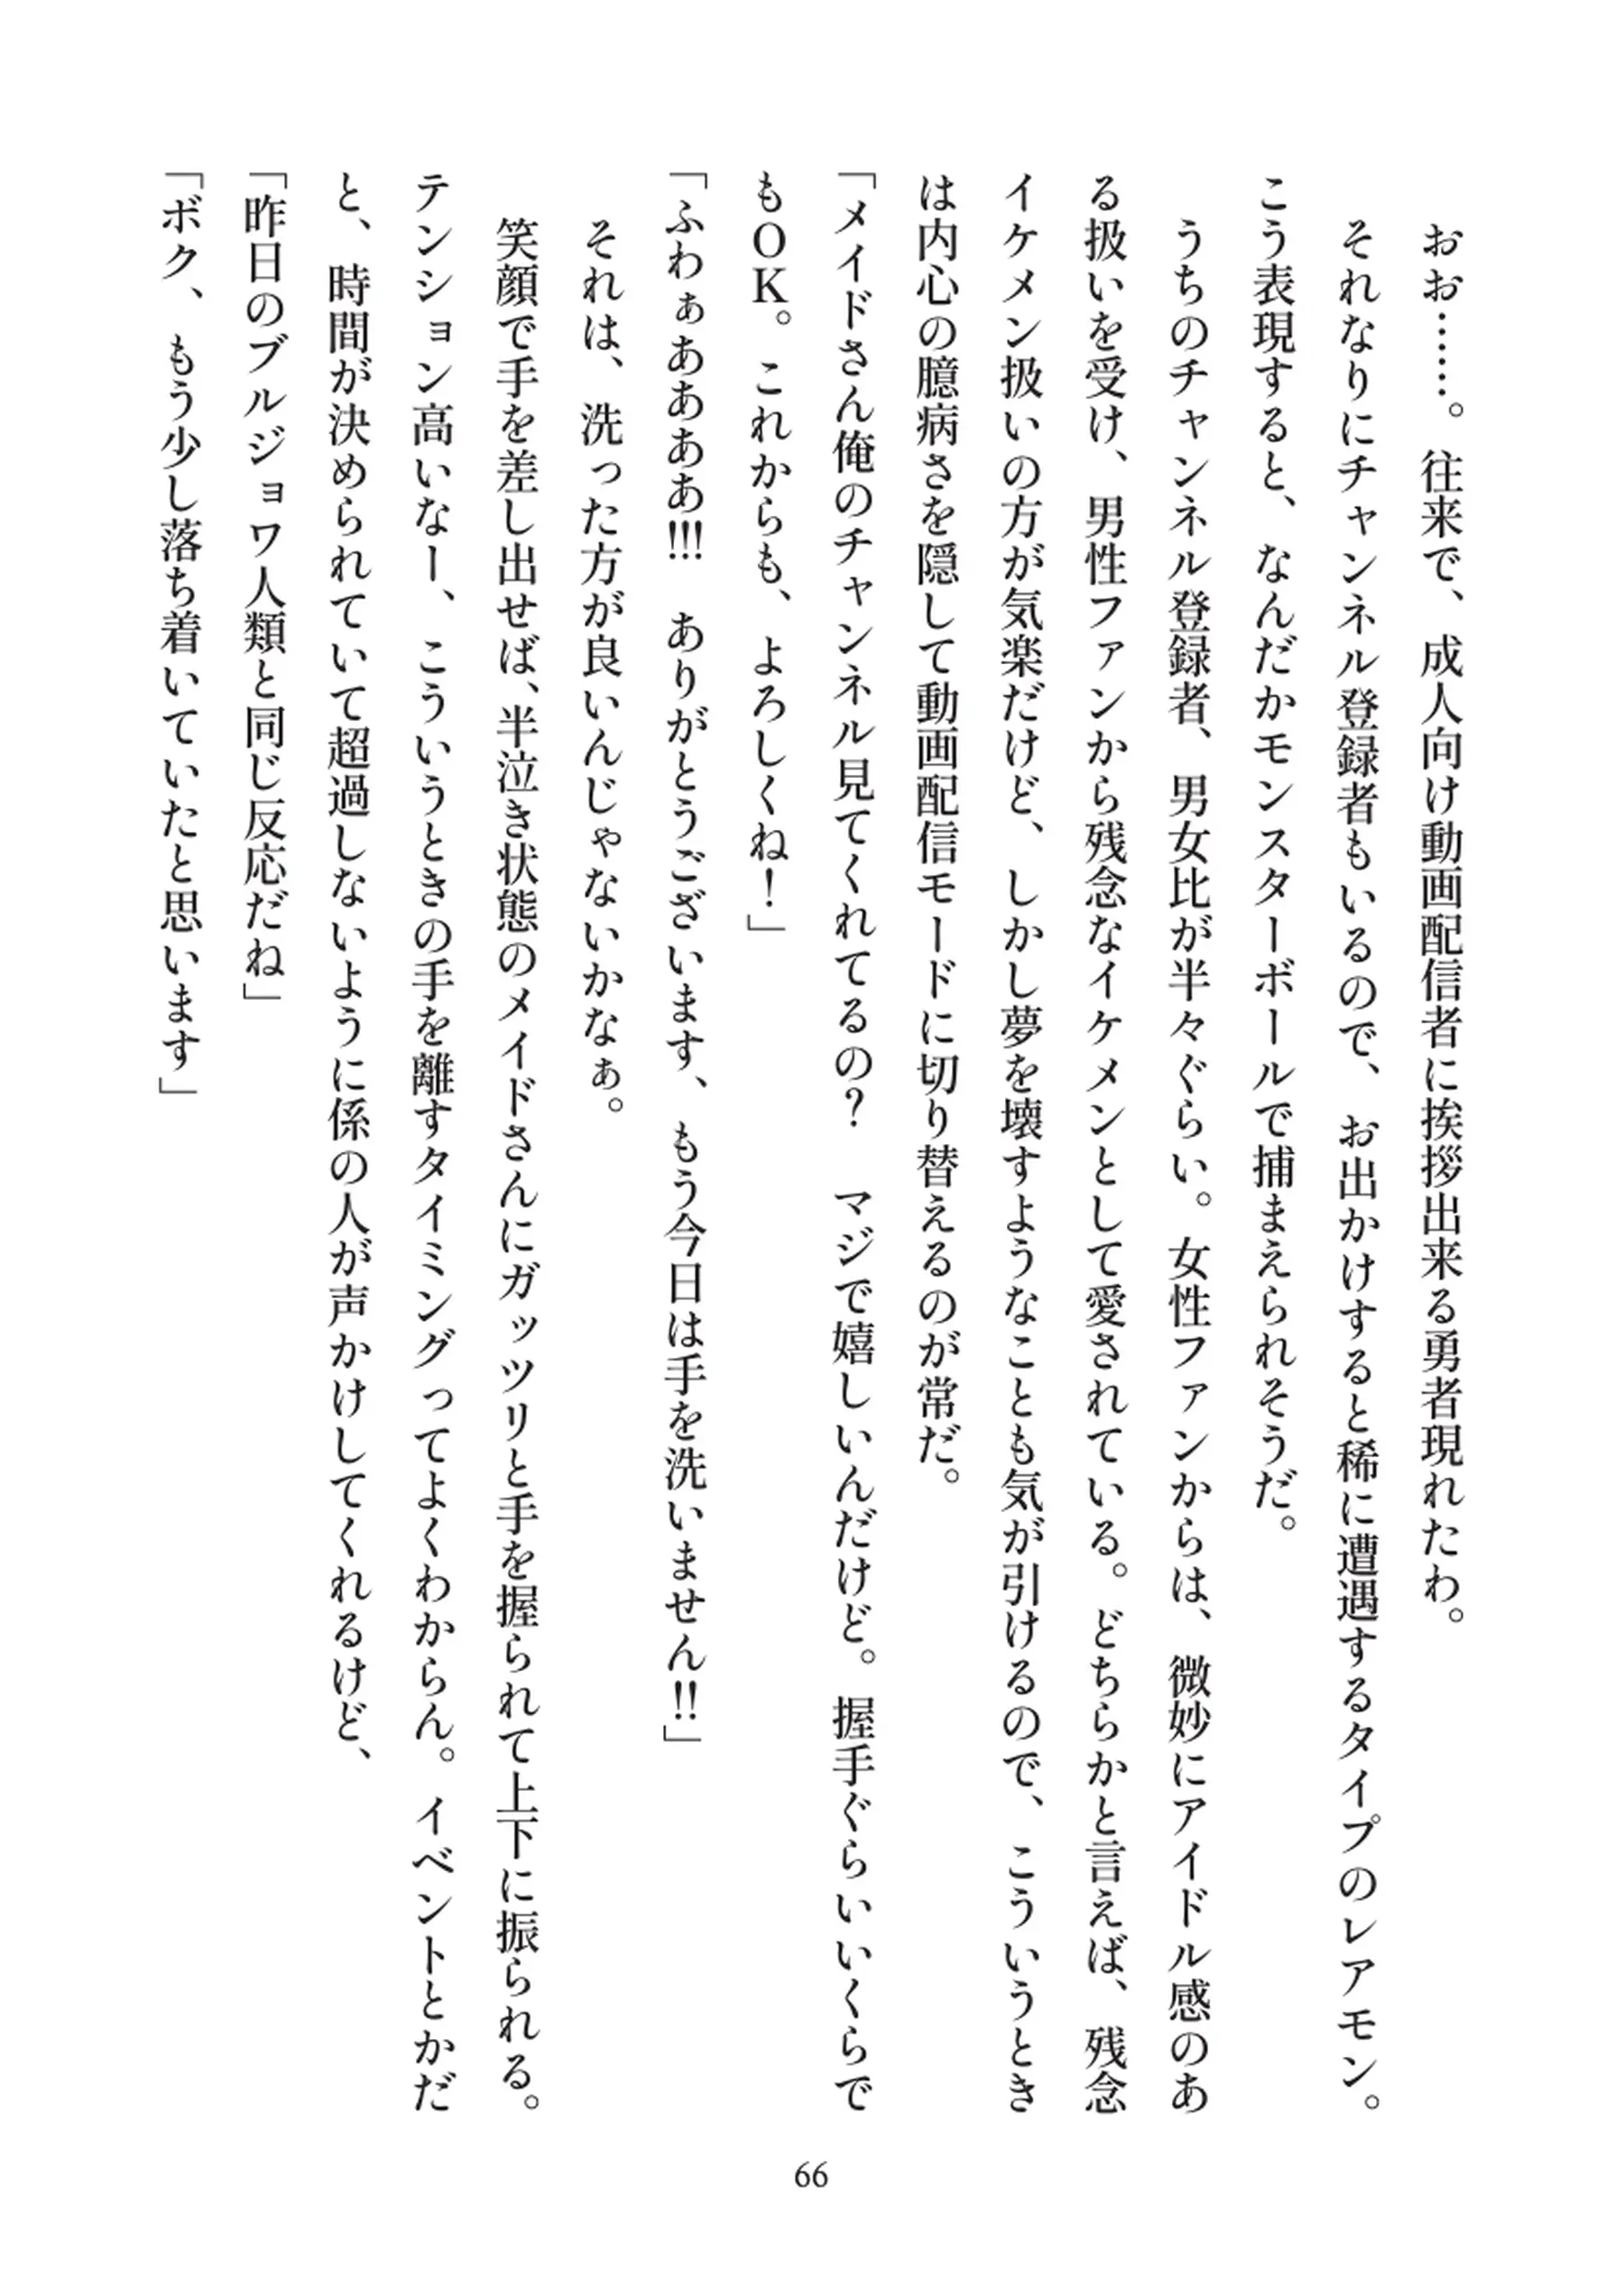 おお……。往来で、成人向け動画配信者に挨拶出来る勇者現れたわ。
　それなりにチャンネル登録者もいるので、お出かけすると稀に遭遇するタイプのレアモン。
こう表現すると、なんだかモンスターボールで捕まえられそうだ。
　うちのチャンネル登録者、男女比が半々ぐらい。女性ファンからは、微妙にアイドル感のあ
る扱いを受け、男性ファンから残念なイケメンとして愛されている。どちらかと言えば、残念
イケメン扱いの方が気楽だけど、しかし夢を壊すようなことも気が引けるので、こういうとき
は内心の臆病さを隠して動画配信モードに切り替えるのが常だ。
「メイドさん俺のチャンネル見てくれてるの？　マジで嬉しいんだけど。握手ぐらいいくらで
もOK。これからも、よろしくね！」
「ふわぁああああ!!!　ありがとうございます、もう今日は手を洗いません!!」
　それは、洗った方が良いんじゃないかなぁ。
　笑顔で手を差し出せば、半泣き状態のメイドさんにガッツリと手を握られて上下に振られる。
テンション高いなー、こういうときの手を離すタイミングってよくわからん。イベントとかだ
と、時間が決められていて超過しないように係の人が声かけしてくれるけど、
「昨日のブルジョワ人類と同じ反応だね」
「ボク、もう少し落ち着いていたと思います」
66